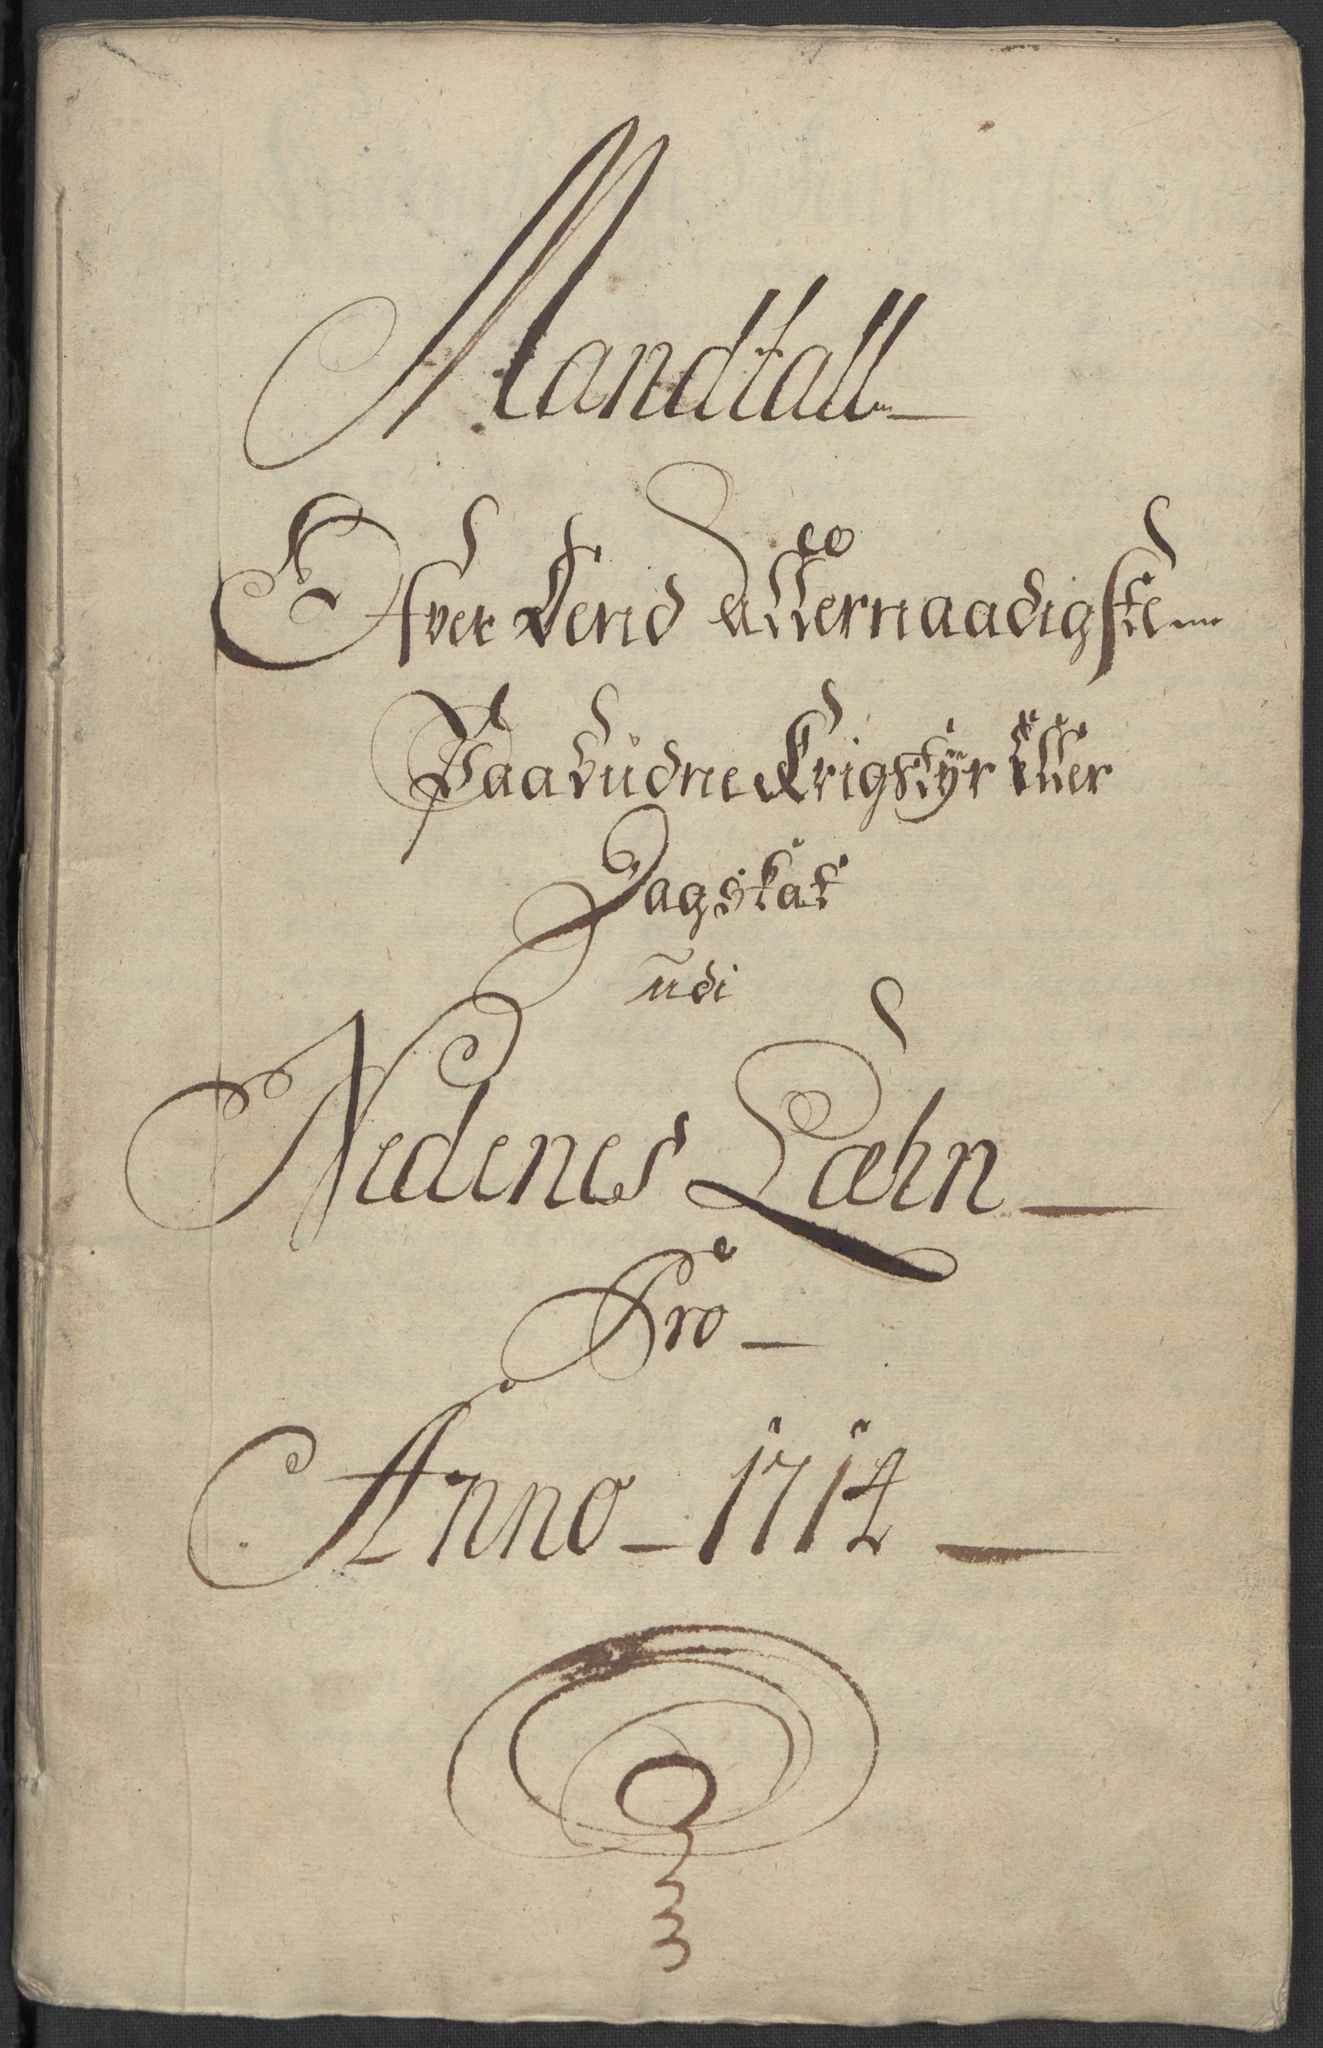 Mandtall
Ofver Dend Allernaadigste
Paabudne Krigstÿr Eller
Dagskat
udi
Nedenes Læhn
Pro
Anno 1714